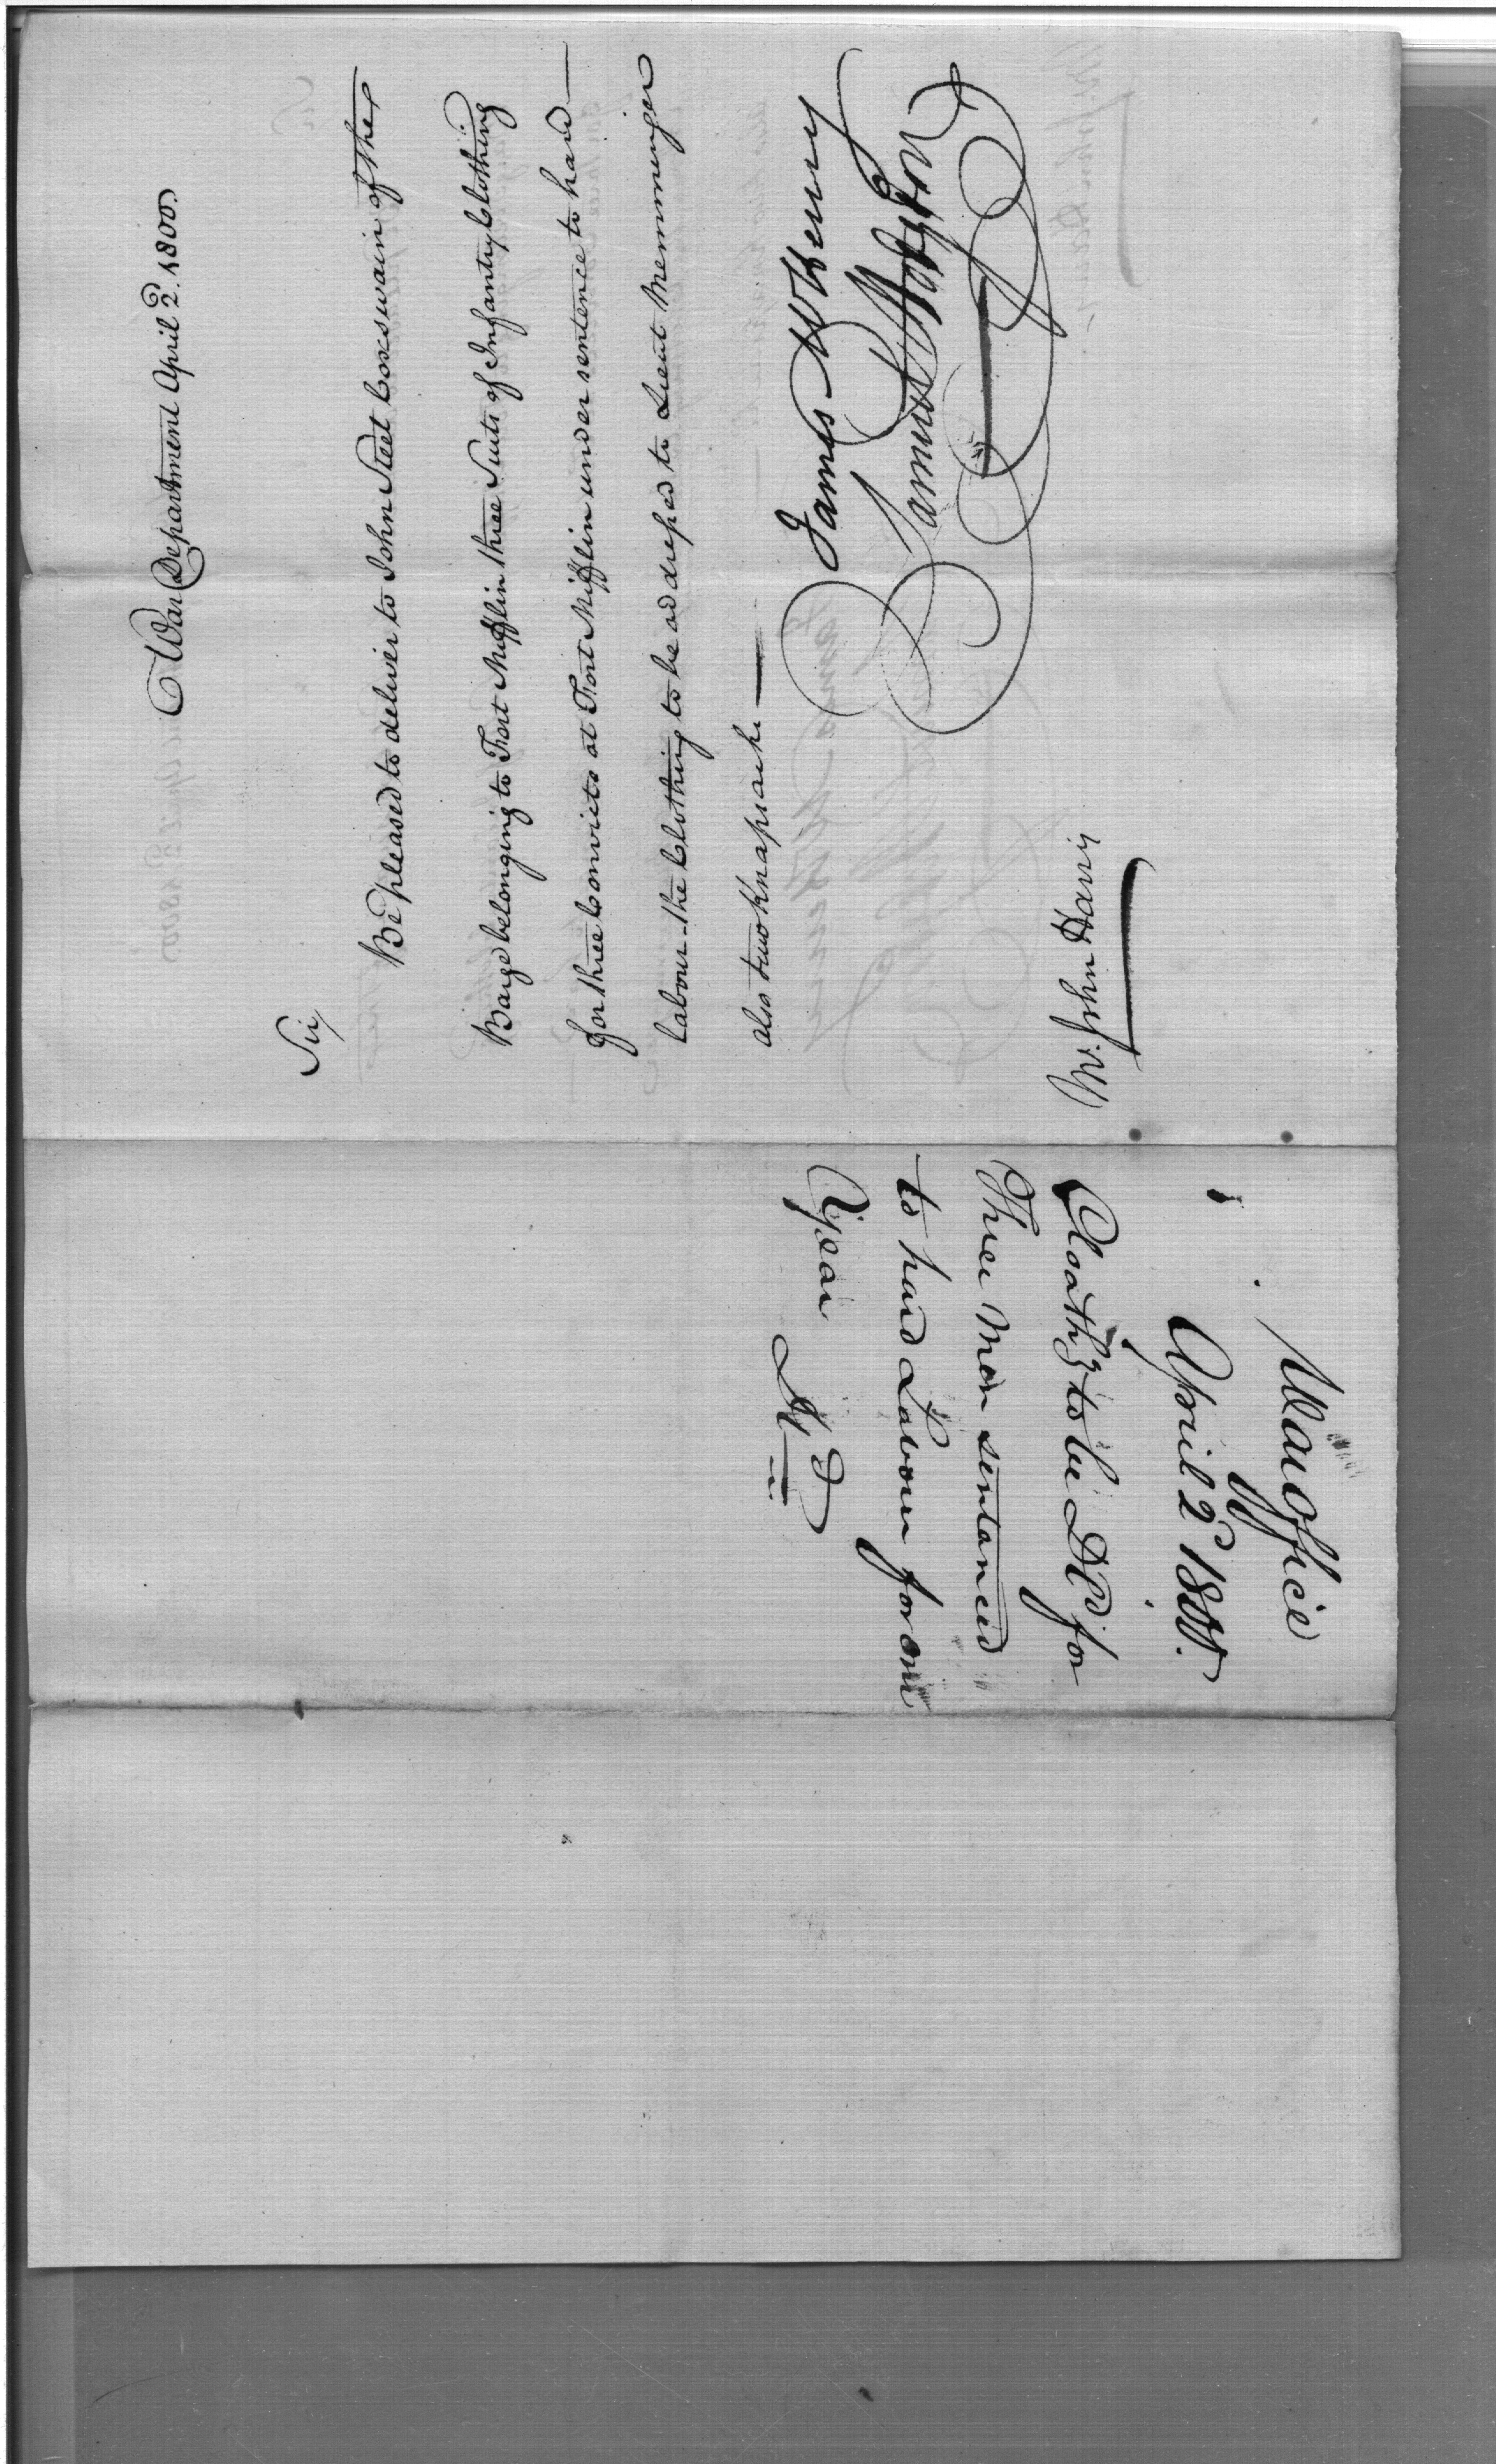 War Department April 2d. 1800.
Sir,
Be pleased to deliver to John Steel Coxswain of the
Barge belonging to Fort Mifflin three Suits of Infantry Clothing
for three Convicts at Fort Mifflin under sentence to hard —
labour – the Clothing to be addressed to Lieut Memminger
also two Knapsacks —
James McHenry
Samuel Hodgdon
Mr. John Harris
War Office
April 2d 1800.
Cloathg to be DD for
Three Men sentanced
to hard Labour for one
Year